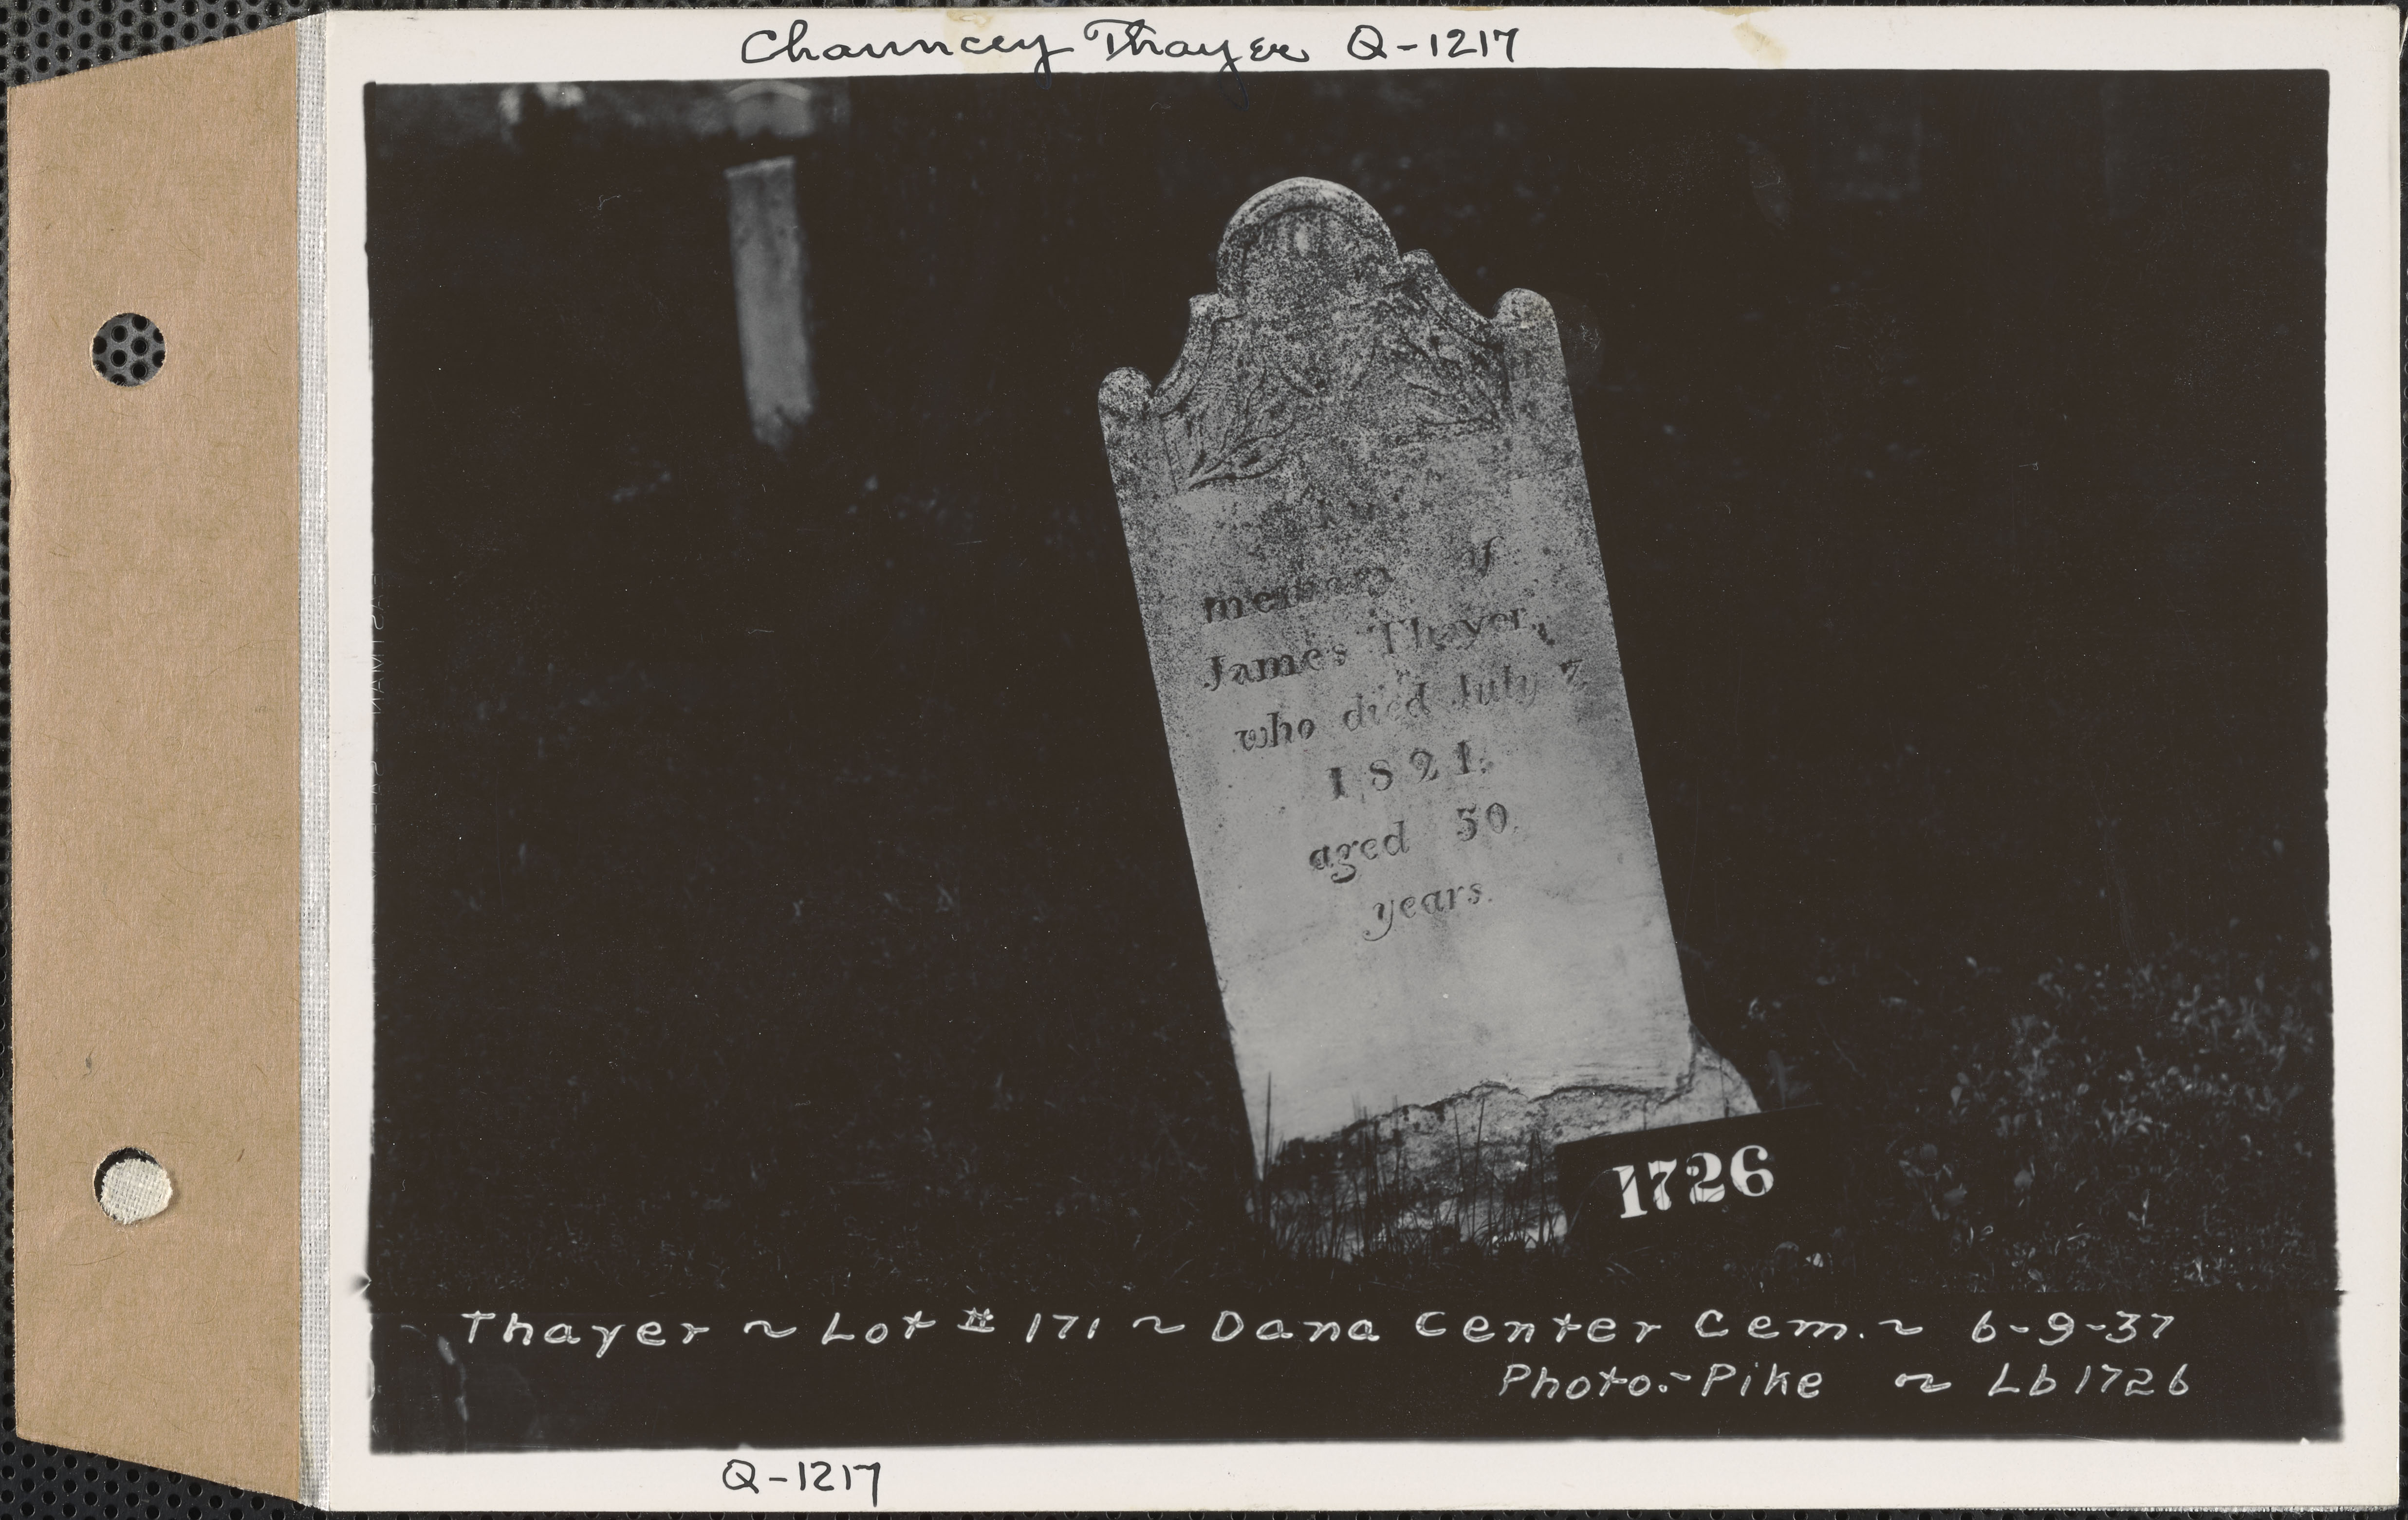 Chauncey Thayer Q-1217
memory of
James Thayer,
who died July 7,
1821.
aged 50
years.
1726
Thayer ~ Lot # 171 ~ Dana Center Cem. ~ 6-9-37
Photo:-Pike ~ Lb1726
Q-1217